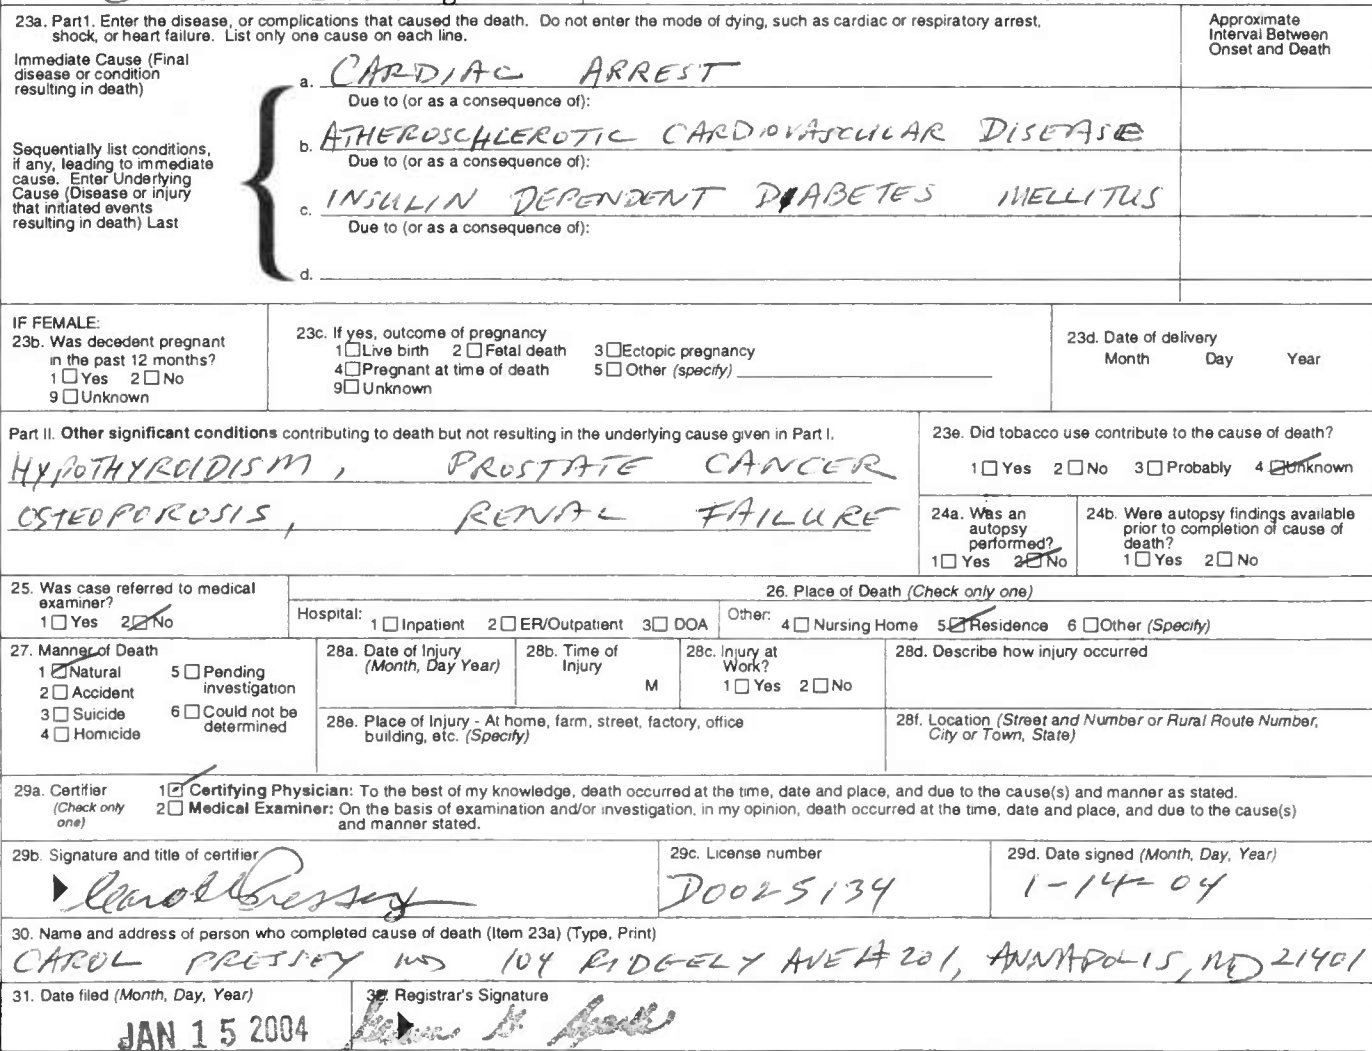 23a. Part1. Enter the disease, or complications that caused the death. Do not enter the mode of dying, such as cardiac or respiratory arrest,
shock, or heart failure. List only one cause on each line.
Approximate
Interval Between
Onset and Death
Immediate Cause (Final
disease or condition
resulting in death)
a. CARDIAC ARREST
Due to (or as a consequence of):
Sequentially list conditions,
if any, leading to immediate
cause. Enter Underlying
Cause (Disease or injury
that initiated events
resulting in death) Last
b. ATHEROSCHLEROTIC CARDIOVASCULAR DISEASE
Due to (or as a consequence of):
c. INSULIN DEPENDENT DIABETES MELLITUS
Due to (or as a consequence of):
d.
IF FEMALE:
23b. Was decedent pregnant
in the past 12 months?
1 Yes 2 No
9 Unknown
23c. If yes, outcome of pregnancy
1 Live birth 2 Fetal death 3 Ectopic pregnancy
4 Pregnant at time of death 5 Other (specify)
9 Unknown
23d. Date of delivery
Month Day Year
Part II. Other significant conditions contributing to death but not resulting in the underlying cause given in Part I.
HYPOTHYROIDISM, PROSTATE CANCER
OSTEOPOROSIS, RENAL FAILURE
23e. Did tobacco use contribute to the cause of death?
1 Yes 2 No 3 Probably 4 Unknown
24a. Was an
autopsy
performed?
1 Yes 2 No
24b. Were autopsy findings available
prior to completion of cause of
death?
1 Yes 2 No
25. Was case referred to medical
examiner?
1 Yes 2 No
26. Place of Death (Check only one)
Hospital: 1 Inpatient 2 ER/Outpatient 3 DOA Other: 4 Nursing Home 5 Residence 6 Other (Specify)
27. Manner of Death
1 Natural
2 Accident
3 Suicide
4 Homicide
5 Pending
investigation
6 Could not be
determined
28a. Date of Injury
(Month, Day Year)
28b. Time of
Injury
M
28c. Injury at
Work?
1 Yes 2 No
28d. Describe how injury occurred
28e. Place of Injury - At home, farm, street, factory, office
building, etc. (Specify)
28f. Location (Street and Number or Rural Route Number,
City or Town, State)
29a. Certifier
(Check only
one)
1 Certifying Physician: To the best of my knowledge, death occurred at the time, date and place, and due to the cause(s) and manner as stated.
2 Medical Examiner: On the basis of examination and/or investigation, in my opinion, death occurred at the time, date and place, and due to the cause(s)
and manner stated.
29b. Signature and title of certifier
Carol Pressey
29c. License number
D0025134
29d. Date signed (Month, Day, Year)
1-14-04
30. Name and address of person who completed cause of death (Item 23a) (Type, Print)
CAROL PRESSEY MD 104 RIDGELY AVE # 201, ANNAPOLIS, MD 21401
31. Date filed (Month, Day, Year)
JAN 15 2004
32. Registrar's Signature